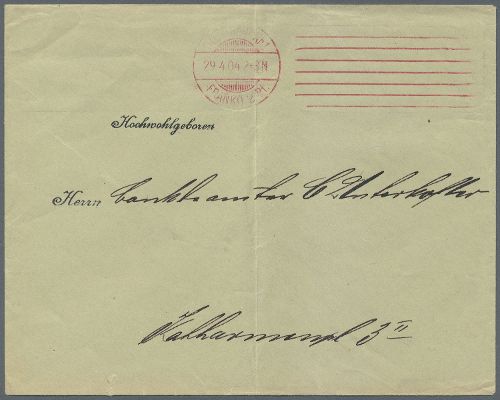 29.4.04.2-3N
FRANKO 2 Pf.
Hochwohlgeboren
Herrn Bankbeamter C Unterholzer
Katharinenpl 3 II